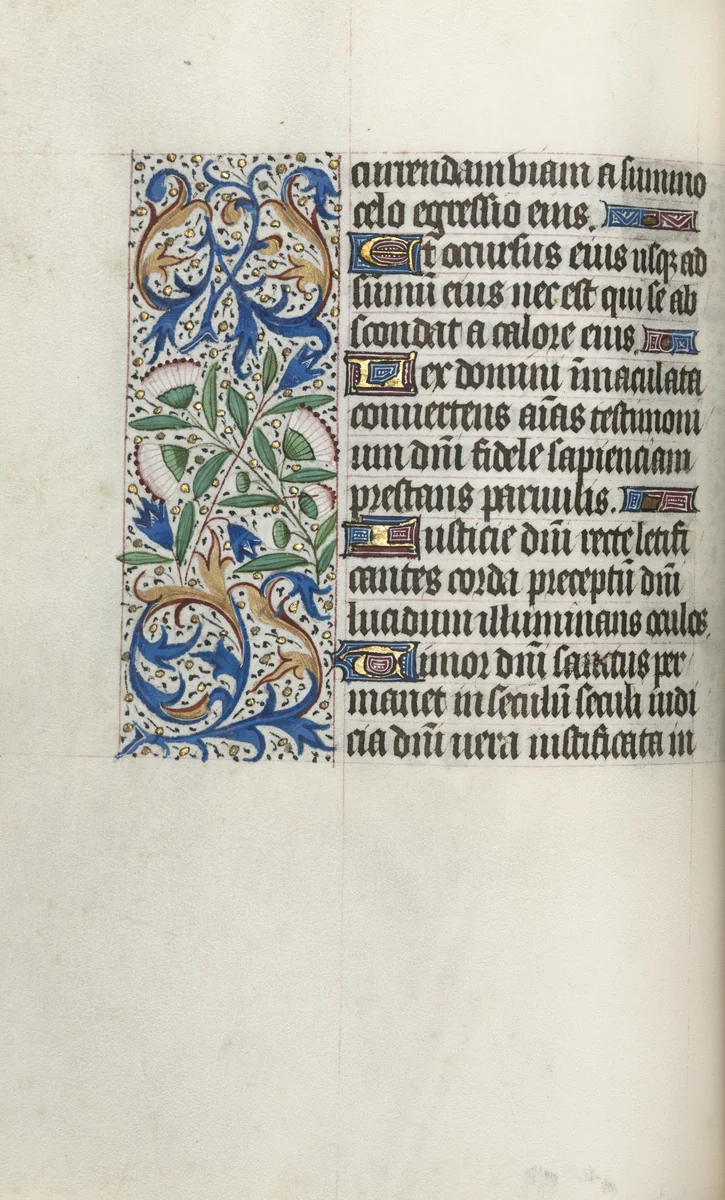 currendam viam a summo
celo egressio eius.
Et occursus eius usq3 ad
sūmū eius nec est qui se ab
scondat a calore eius.
Lex domini īmaculata
convertens aīas testimoni
um dn̄i fidele sapienciam
prestans parvulis.
Iusticie dn̄i recte letifi
cantes corda preceptū dn̄i
lucidum illuminans oculos.
Timor dn̄i sanctus per
manet in seculū seculi iudi
cia dn̄i vera iustificata in